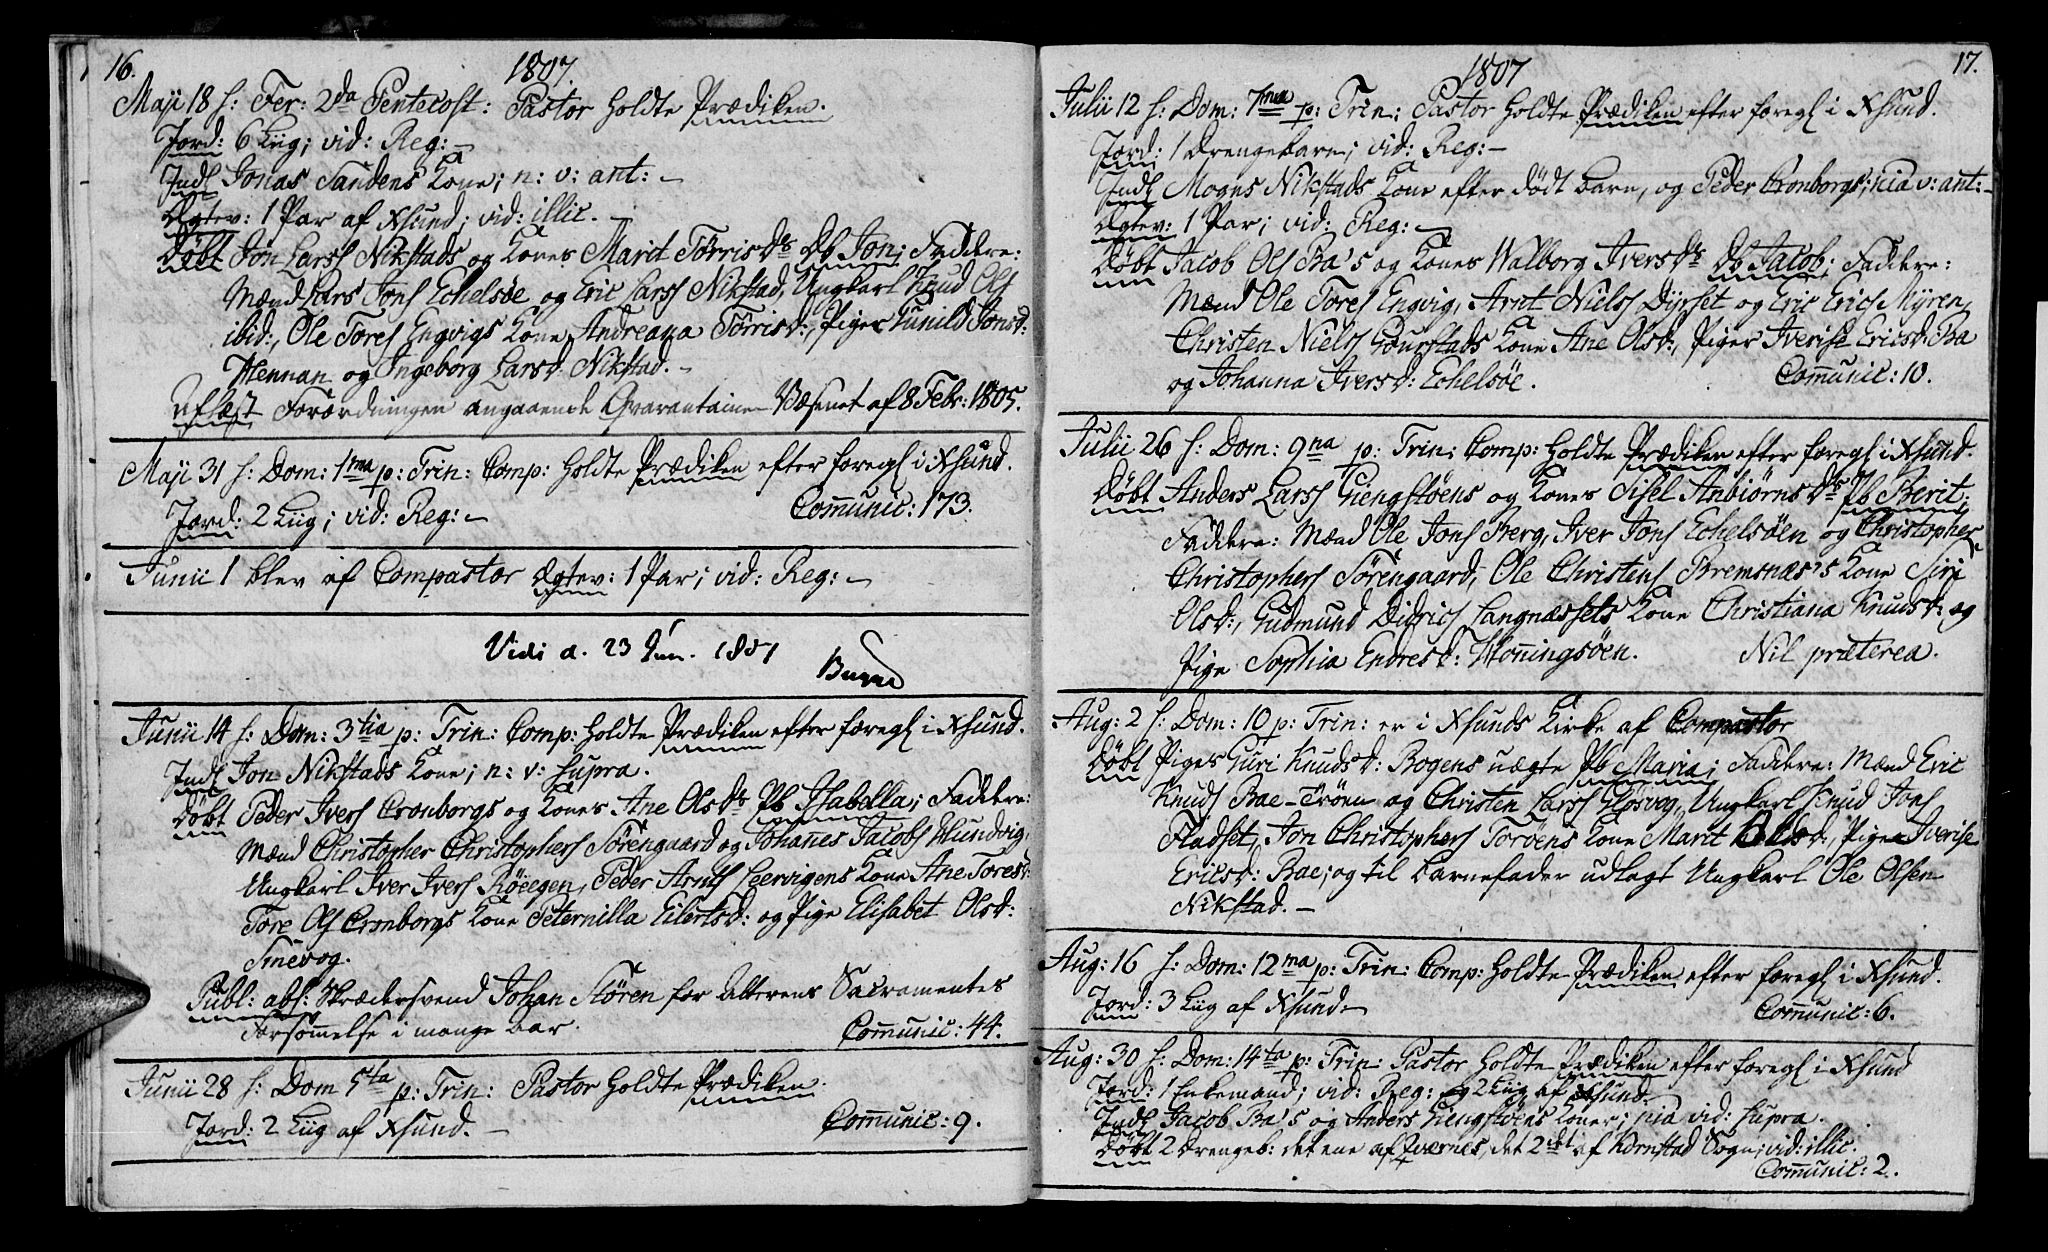 16.
1807.
Maji 18 h: Fer: 2da Pentecost: Pastor holdte Prædiken.
Jord: 6 Liig; vid: Reg: –
Indl Jonas Sandens Kone; n: v: ant: –
Ægtev: 1 Par af Xsund; vid: illic. –
Døbt Jon Larss Nikstads og Kones Marit Tørrisdr Db Jon; Faddere:
Mænd Lars Jons Echelsøe og Eric Larss Nikstad, Ungkarl Knud Ols
ibid:, Ole Tores Engvigs Kone Andreana Törrisd:, Piger Gunild Jonsd:
Hennan og Ingeborg Larsd. Nikstad. –
Oplæst Forordningen angaaende Qvarantaine-Væsenet af 8 Febr: 1805.
Maji 31 h: Dom: 1ma p: Trin: Comp: holdte Prædiken efter foregl i Xsund.
Jord: 2 Liig; vid: Reg: –
Communic: 173.
Junii 1 blev af Compastor Ægtev: 1 Par; vid: Reg: –
Vidi d. 23 Jun. 1807
Junii 14 h: Dom: 3tia p: Trin: Comp: holdte Prædiken efter foregl i Xsund.
Indl Jon Nikstads Kone; n: v: supra.
Døbt Peder Ivers Cronborgs og Kones Ane Olsdr Pb Isabella; Faddere:
Mænd Christopher Christophers Sörengaard og Johannes Jacobs Hundvig,
Ungkarl Iver Ivers Röeegen, Peder Arnts Leervigens Kone Ane Toresd:
Tore Ols Cronborgs Kone Peternilla Eilertsd: og Pige Elisabet Olsd:
Sinevog.
Publ: abs: Skrædersvend Johan Stören for Alterens Sacramentes
Forsømmelse i mange Aar.
Communic: 44.
Junii 28 h: Dom 5ta p: Trin: Pastor holdte Prædiken.
Jord: 2 Liig af Xsund. –
Communic: 9.
17.
1807
Julii 12 h: Dom: 7ma p: Trin: Pastor holdte Prædiken efter foregl i Xsund.
Jord: 1 Drengebarn; vid: Reg: –
Indl Mogns Nikstads Kone efter dødt Barn, og Peder Cronborgs; nia v: ant: –
Ægtev: 1 Par; vid: Reg: –
Døbt Jacob Ols Ba's og Kones Walborg Iversdr Db Jacob; Faddere:
Mænd Ole Tores Engvig, Arnt Niels Dyrset og Eric Erics Myren,
Christen Niels Gourstads Kone Ane Olsd:, Piger Iverise Ericsd: Ba
og Johanna Iversd: Echelsöe.
Communic: 10.
Julii 26 h: Dom: 9na p: Trin: Comp: holdte Prædiken efter foregl i Xsund.
Døbt Anders Larss Giengstöens og Kones Sisel Anbiörnsdr Pb Berit;
Faddere: Mænd Ole Jons Berg, Iver Jons Echelsöen og Christopher
Christophers Sörengaard, Ole Christens Bremsnæs's Kone Siri
Olsd:, Gudmund Didrics Langnæssets Kone Christiana Knudsd: og
Pige Sophia Endresd: Honningsöen.
Nil præterea.
Aug: 2 h: Dom: 10 p: Trin: er i Xsunds Kirke af Compastor
Døbt Piges Guri Knudsd: Bogens uægte Pb Maria; Faddere: Mænd Eric
Knuds Bae-Tröen og Christen Larss Glösvog, Ungkarl Knud Jons
Fladset, Jon Christophers Toröens Kone Marit Olsd:, Pige Iverise
Ericsd: Bae; og til Barnefader udlagt Ungkarl Ole Olsen
Nikstad. –
Aug: 16 h: Dom: 12ma p: Trin: Comp: holdte Prædiken efter foregl i Xsund.
Jord: 3 Liig af Xsund. –
Communic: 6.
Aug: 30 h: Dom: 14ta p: Trin: Pastor holdte Prædiken efter foregl i Xsund
Jord: 1 Enkemand; vid: Reg: og 2 Liig af Xsund.
Indl Jacob Ba's og Anders Giengstöens Koner; nia vid: supra.
Døbt 2 Drengeb: det ene af Qværnes, det 2det af Kornstad Sogn; vid: illic.
Communic: 2.